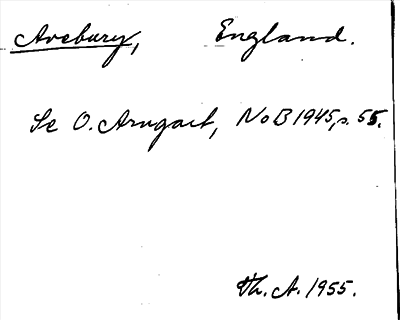 Avebury, England.
Se O. Arngart, NoB 1945, s. 55.
Th. A. 1955.